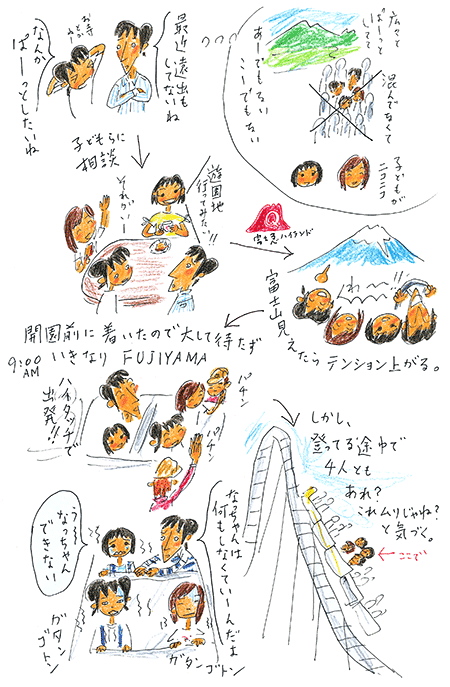 最近遠出も
いてないね
なんか
ぱーっとしたいね
広々と
ぱーっと
してて
混んでなくて
子どもが
ニコニコ
あーでもない
こーでもない
子どもらに
相談
遊園地
行ってみたい!!
それがいー
Q
富士急ハイランド
わ〜〜!!
富士山見えたらテンション上がる。
開園前に着いたので大して待たず
9:00
AM
いきなり FUJIYAMA
ハイタッチで
出発!!
パチン
パチン
しかし、
登ってる途中で
4人とも
あれ?
これムリじゃね?
と気づく。
←ここで
なっちゃんは
何もしなくていーんだよ
う〜〜
なっちゃん
できない
ガタン
ゴトン
ガタンゴトン